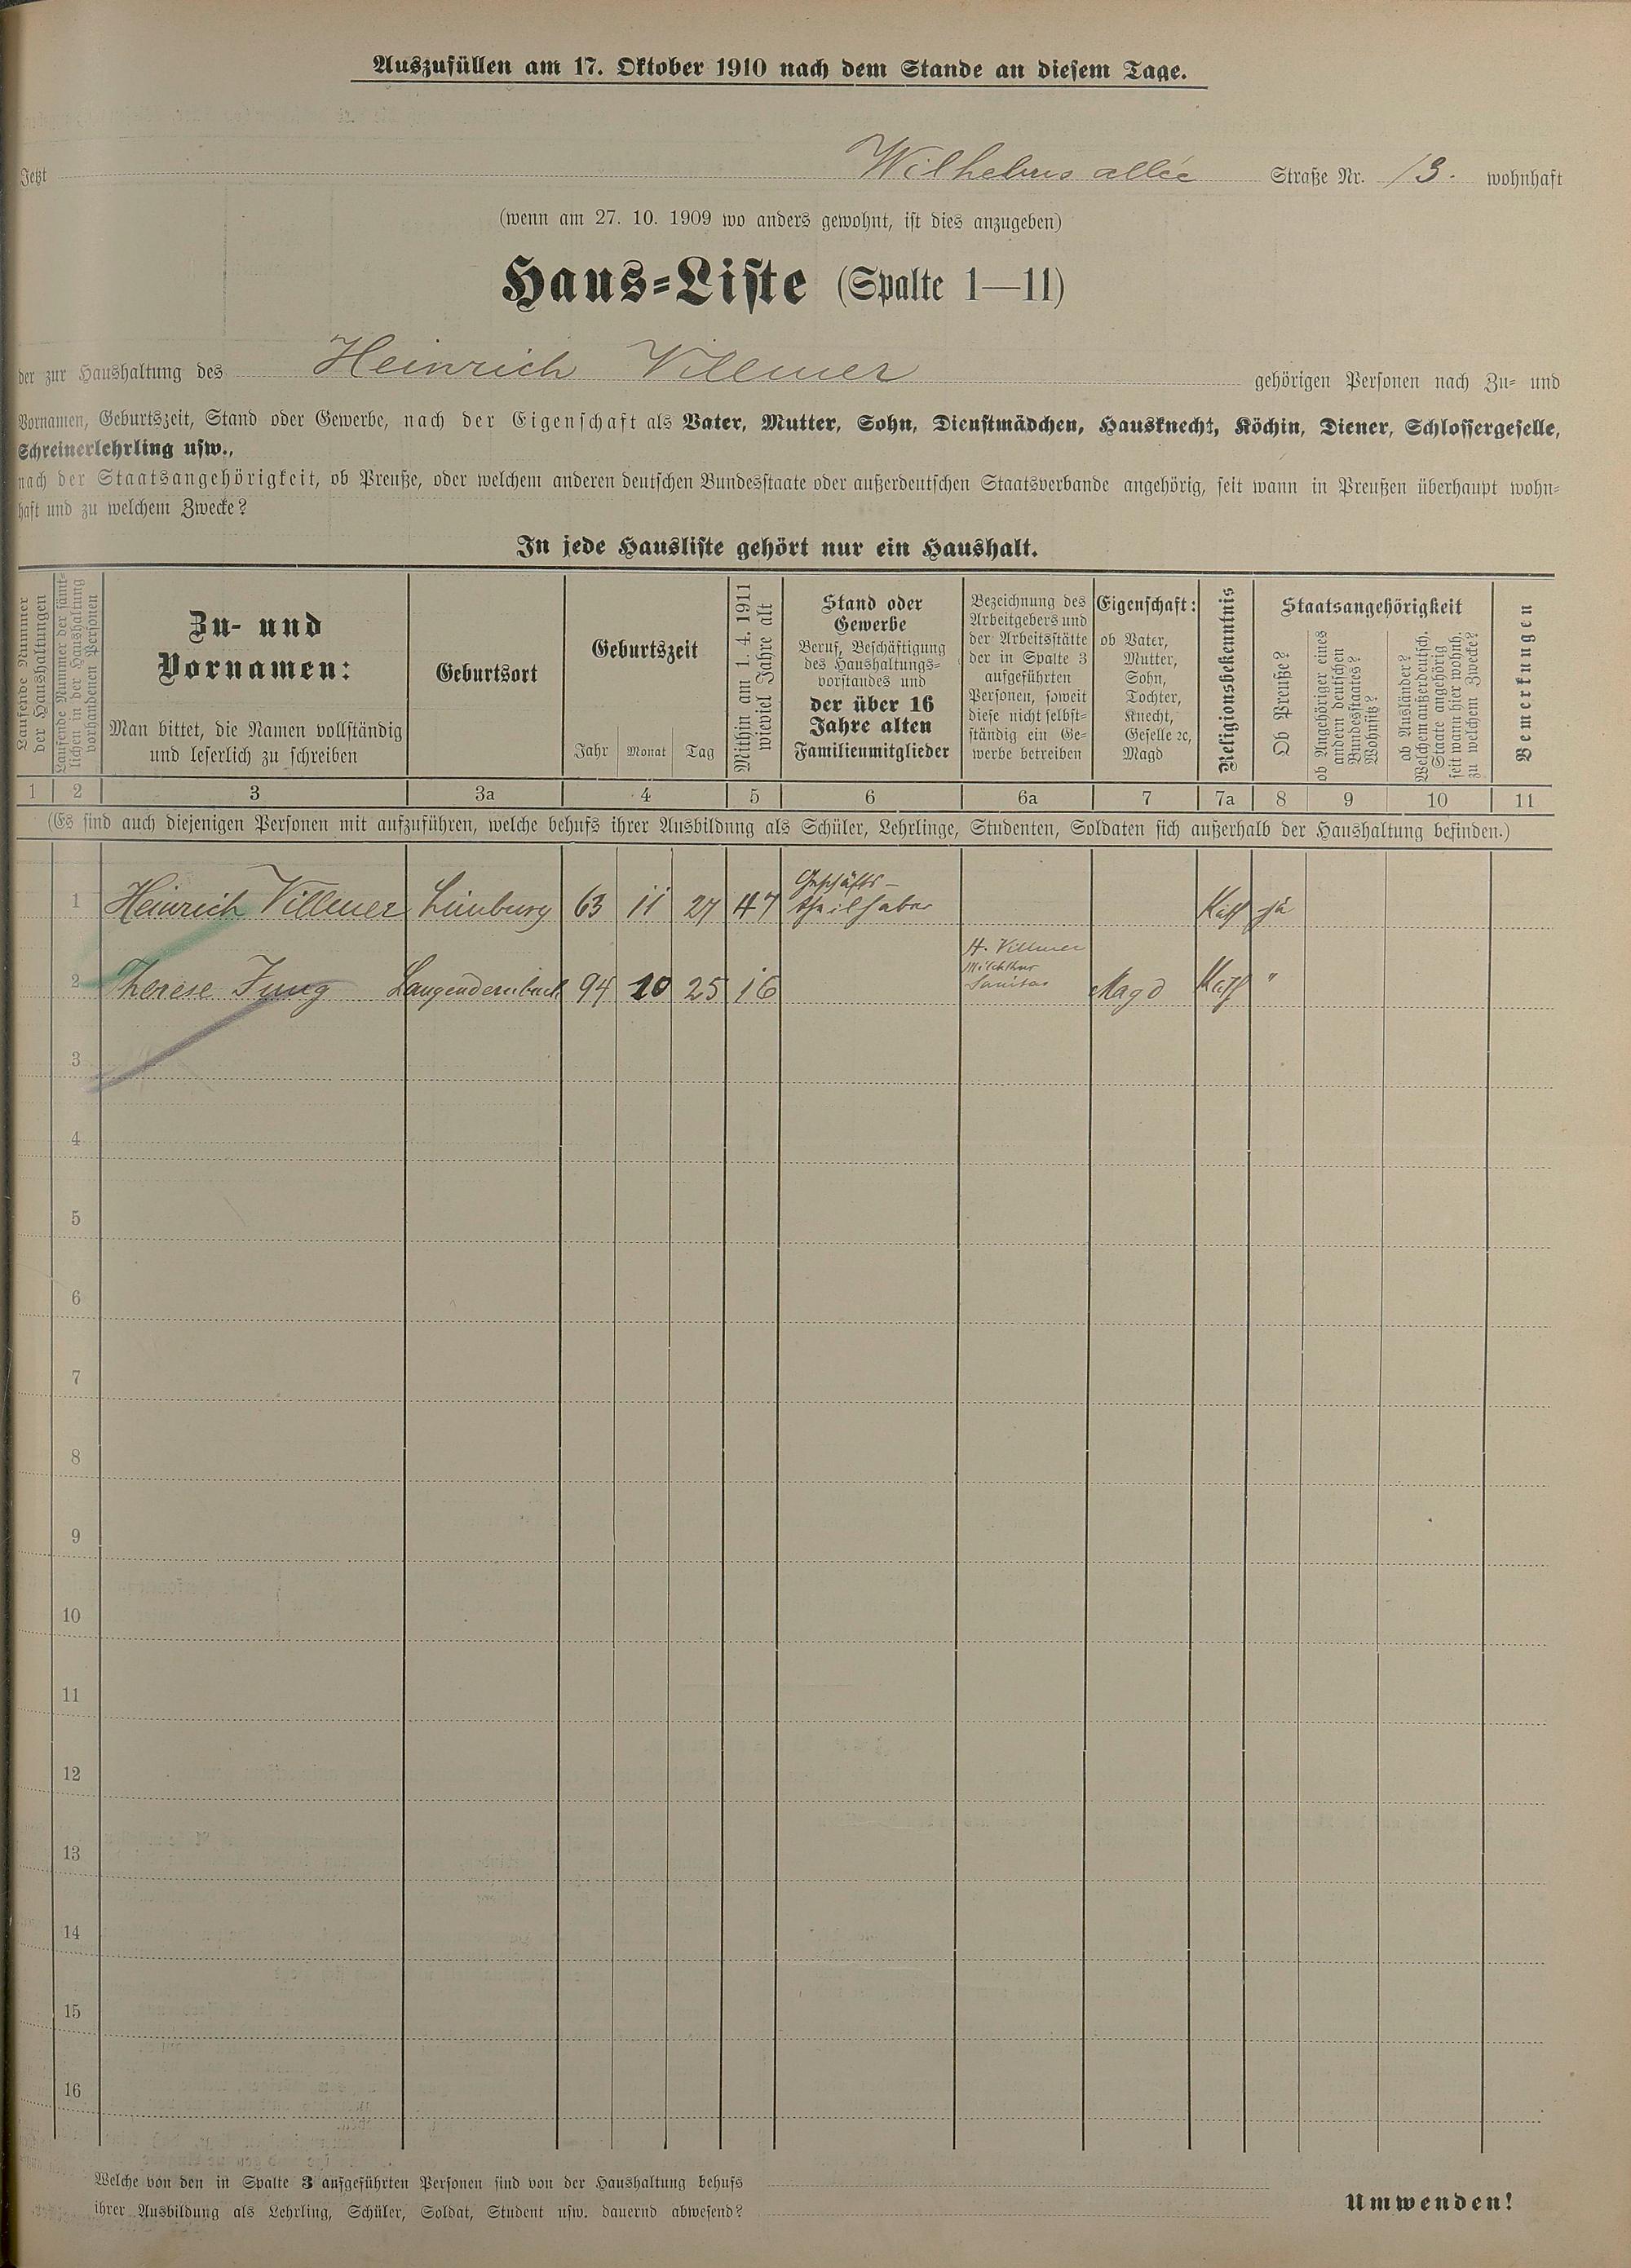 Auszufüllen am 17. Oktober 1910 nach dem Stande an diesem Tage.
Jetzt Wilhelms allée Straße Nr. 13. wohnhaft
(wenn am 27. 10. 1909 wo anders gewohnt, ist dies anzugeben)
Haus-Liste (Spalte 1—11)
der zur Haushaltung des Heinrich Villmer gehörigen Personen nach Zu- und
Vornamen, Geburtszeit, Stand oder Gewerbe, nach der Eigenschaft als Vater, Mutter, Sohn, Dienstmädchen, Hausknecht, Köchin, Diener, Schlossergeselle,
Schreinerlehrling usw.,
nach der Staatsangehörigkeit, ob Preuße, oder welchem anderen deutschen Bundesstaate oder außerdeutschen Staatsverbande angehörig, seit wann in Preußen überhaupt wohn-
haft und zu welchem Zwecke?
In jede Hausliste gehört nur ein Haushalt.
Laufende Nummer
der Haushaltungen
Laufende Nummer der sämt-
lichen in der Haushaltung
vorhandenen Personen
Zu- und
Vornamen:
Man bittet, die Namen vollständig
und leserlich zu schreiben
Geburtsort
Geburtszeit
Jahr Monat Tag
Mithin am 1. 4. 1911
wieviel Jahre alt
Stand oder
Gewerbe
Beruf, Beschäftigung
des Haushaltungs-
vorstandes und
der über 16
Jahre alten
Familienmitglieder
Bezeichnung des
Arbeitgebers und
der Arbeitsstätte
der in Spalte 3
aufgeführten
Personen, soweit
diese nicht selbst-
ständig ein Ge-
werbe betreiben
Eigenschaft:
ob Vater,
Mutter,
Sohn,
Tochter,
Knecht,
Geselle ec,
Magd
Religionsbekenntnis
Staatsangehörigkeit
Ob Preuße?
ob Angehöriger eines
andern deutschen
Bundesstaates?
Wohnsitz?
ob Ausländer?
Welchem außerdeutsch.
Staate angehörig
seit wann hier wohnh.
zu welchem Zwecke?
Bemerkungen
1 2 3 3a 4 5 6 6a 7 7a 8 9 10 11
(Es sind auch diejenigen Personen mit aufzuführen, welche behufs ihrer Ausbildung als Schüler, Lehrlinge, Studenten, Soldaten sich außerhalb der Haushaltung befinden.)
1 Heinrich Villmer Limburg 63 11 27 47 Geschäfts-
theilhaber Kath ja
2 Therese Jung Langendernbach 94 10 25 16 H. Villmer
Milchkur
Sanitas Magd Kath "
3
4
5
6
7
8
9
10
11
12
13
14
15
16
Welche von den in Spalte 3 aufgeführten Personen sind von der Haushaltung behufs
ihrer Ausbildung als Lehrling, Schüler, Soldat, Student usw. dauernd abwesend?
Umwenden!